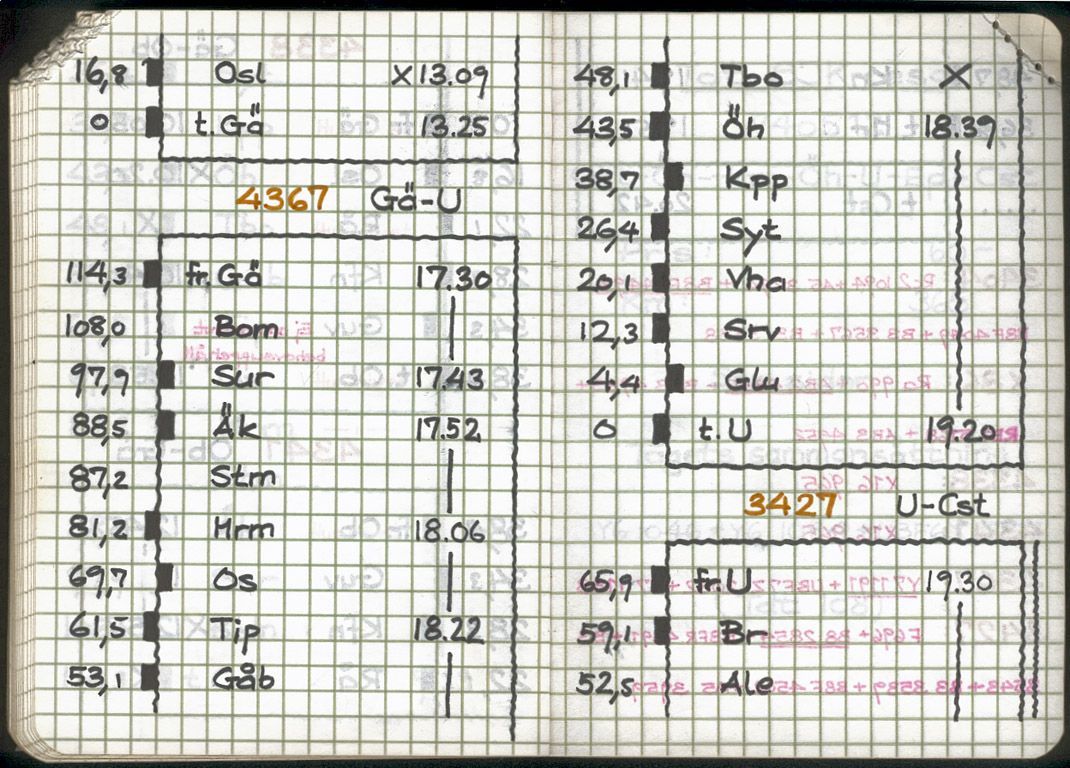 16,8 Osl X 13.09
0 t. Gä 13.25
4367 Gä-U
114,3 fr. Gä 17.30
108,0 Bom
97,9 Sur 17.43
88,5 Äk 17.52
87,2 Strn
81,2 Mrm 18.06
69,7 Os
61,5 Tip 18.22
53,1 Gåb
48,1 Tbo X
43,5 Öh 18.39
38,7 Kpp
26,4 Syt
20,1 Vha
12,3 Srv
4,4 Glu
0 t. U 19.20
3427 U-Cst
65,9 fr. U 19.30
59,1 Br
52,5 Ale